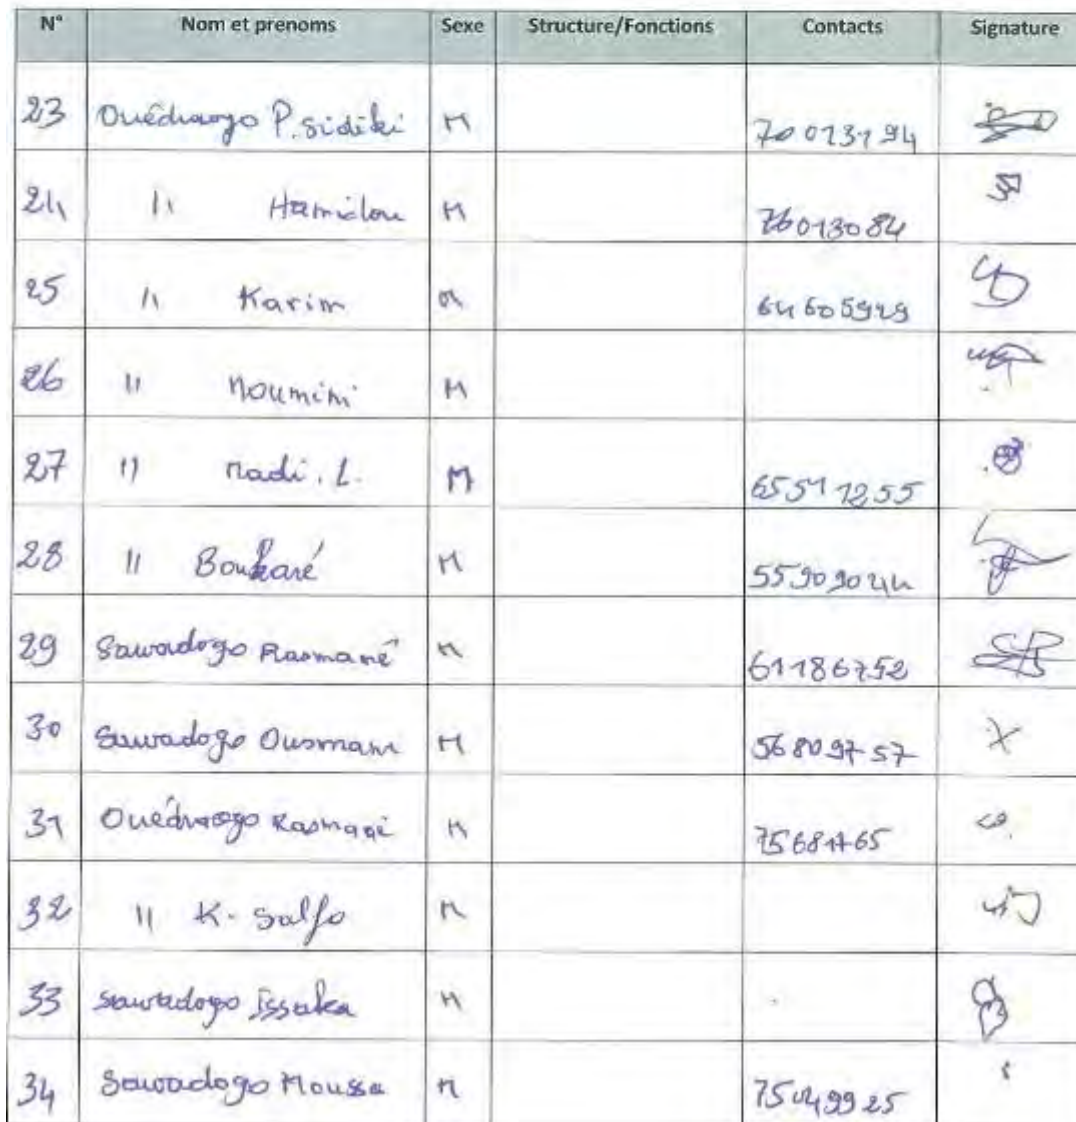 N° Nom et prenoms Sexe Structure/Fonctions Contacts Signature
23 Ouédraogo P. Sidiki M 70013194
24 " Hamidou M 76013084
25 " Karim M 64605929
26 " Noumini M
27 " Madi. L. M 65511255
28 " Boukaré M 55909044
29 Sawadogo Rasmané M 61186752
30 Sawadogo Ousmani M 56809757
31 Ouédraogo Rasmané M
32 " K. Salfo M
33 Sawadogo Issaka M
34 Sawadogo Moussa M 75049925